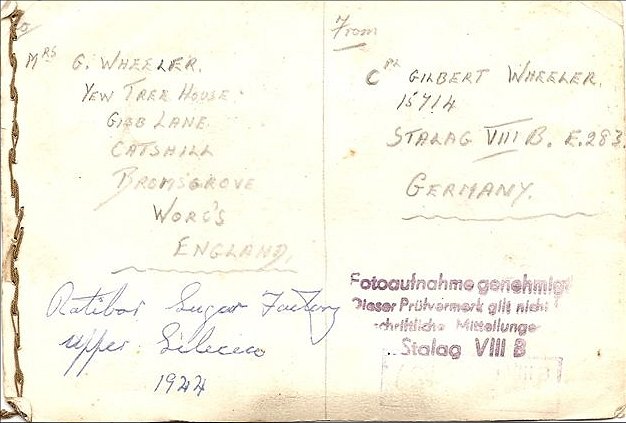 To
Mrs G. Wheeler.
Yew Tree House.
Gibb Lane
Catshill
Bromsgrove
Worc's
England,
Ratibor Sugar Factory
upper Silecia
1944
From
Cpl Gilbert Wheeler.
15714
Stalag VIII B. E.283.
Germany.
Fotoaufnahme genehmigt
Dieser Prüfvermerk gilt nicht
schriftliche Mitteilunge
Stalag VIII B